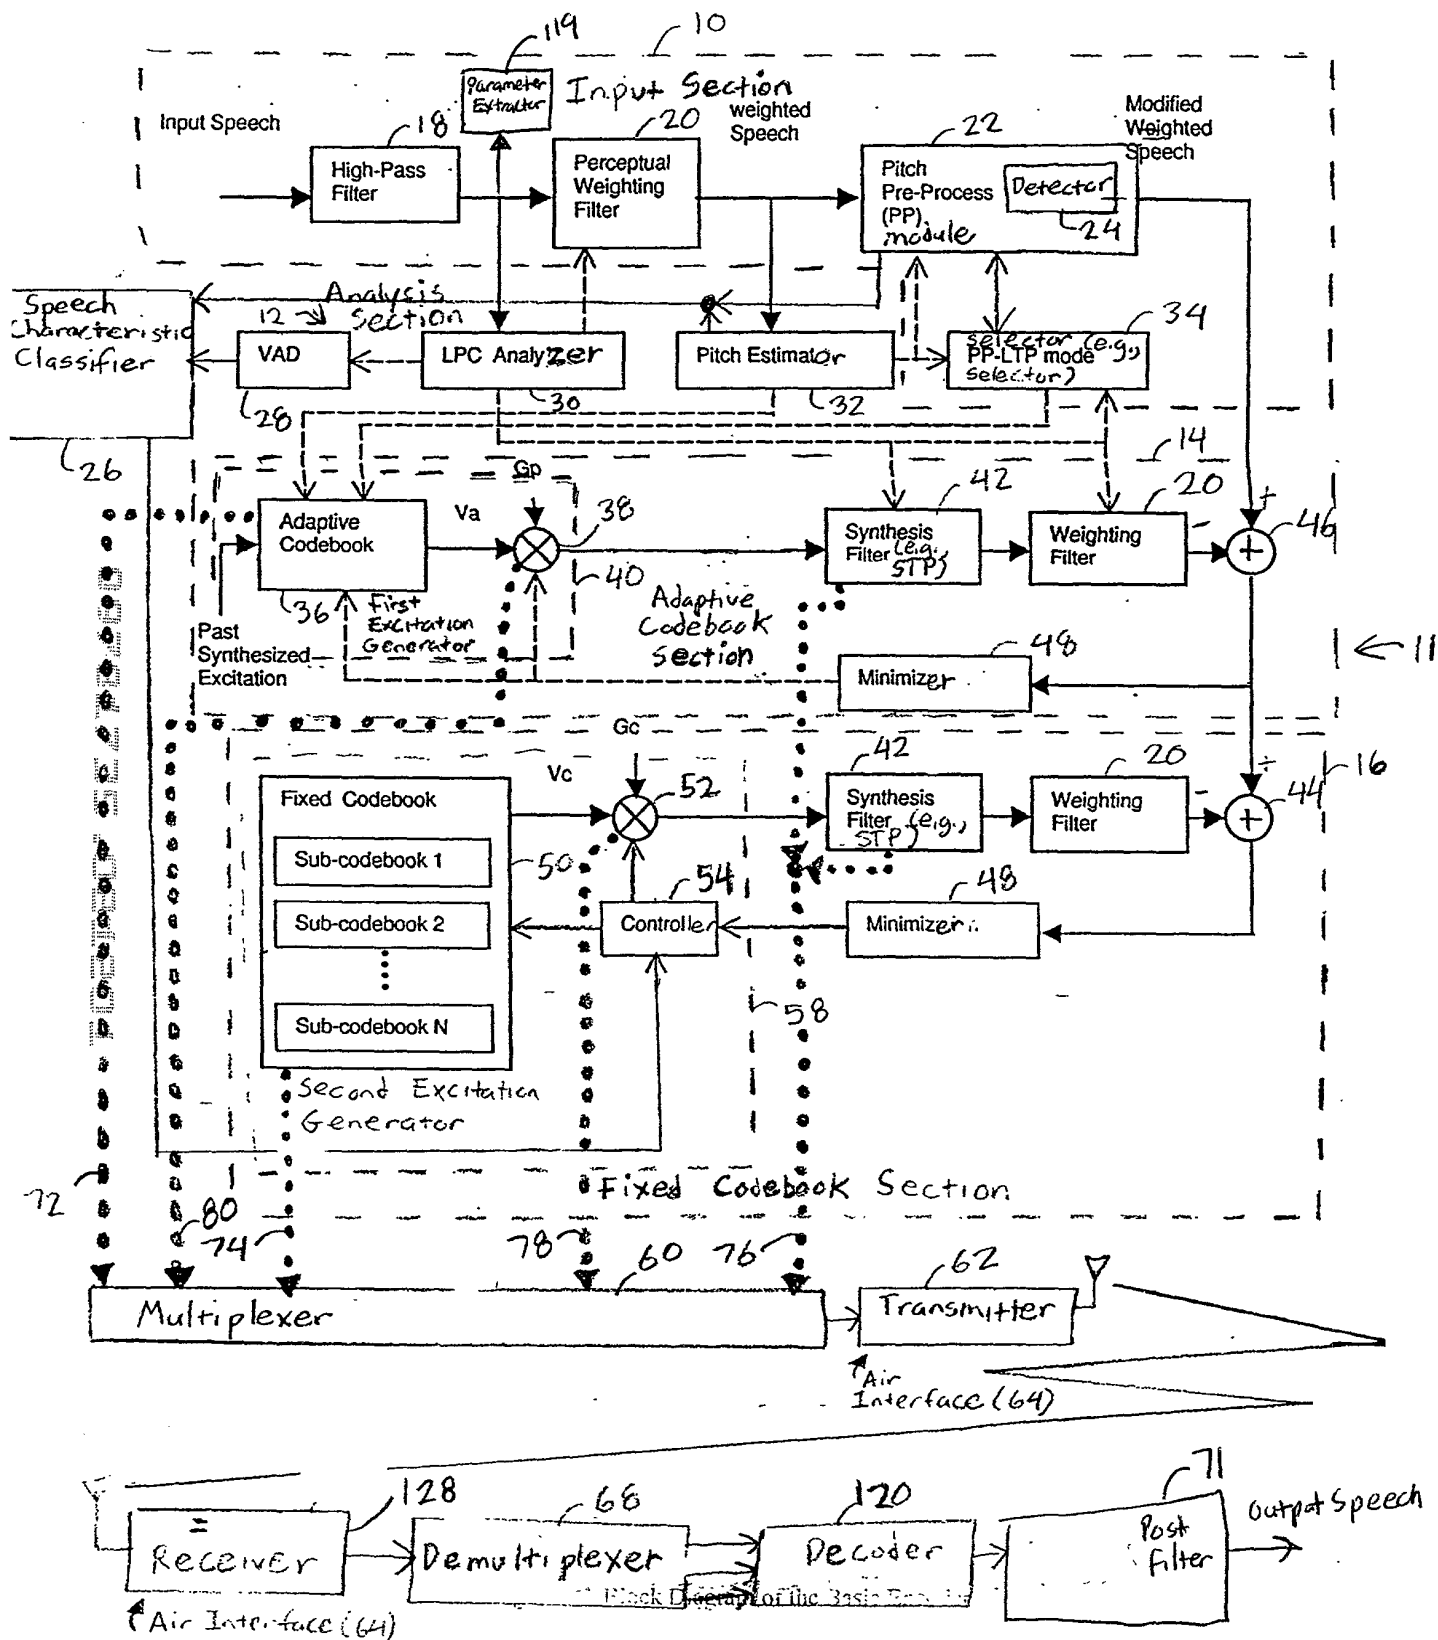 10
119
Parameter
Extractor
Input Section
Input Speech
18
High-Pass
Filter
20
Perceptual
Weighting
Filter
weighted
Speech
22
Pitch
Pre-Process
(PP)
module
Detector
24
Modified
Weighted
Speech
Speech
Characteristic
Classifier
26
Analysis
Section
12
VAD
28
LPC Analyzer
30
Pitch Estimator
32
34
selector (e.g.,
PP-LTP mode
selector)
14
Gp
Va
38
Adaptive
Codebook
36
First
Excitation
Generator
40
Past
Synthesized
Excitation
Adaptive
Codebook
Section
42
Synthesis
Filter (e.g.,
STP)
20
Weighting
Filter
-
+
46
+
48
Minimizer
11
Gc
Vc
52
Fixed Codebook
Sub-codebook 1
Sub-codebook 2
Sub-codebook N
50
54
Controller
42
Synthesis
Filter (e.g.,
STP)
20
Weighting
Filter
-
+
44
16
48
Minimizer
58
Second Excitation
Generator
Fixed Codebook Section
72
80
74
78
76
60
Multiplexer
62
Transmitter
Air
Interface (64)
128
Receiver
Air Interface (64)
68
Demultiplexer
120
Decoder
71
Post
Filter
Output Speech
Block Diagram of the Basic